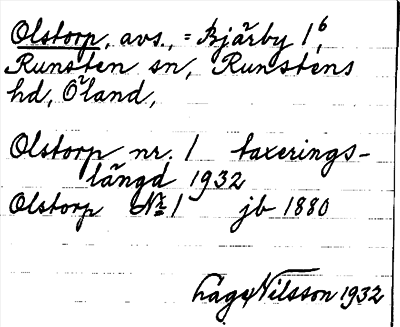 Olstorp, avs., = Bjärby 1⁶
Runsten sn, Runstens
hd, Öland,
Olstorp nr. 1 taxerings-
längd 1932
Olstorp № 1 jb 1880
Låge Nilsson 1932